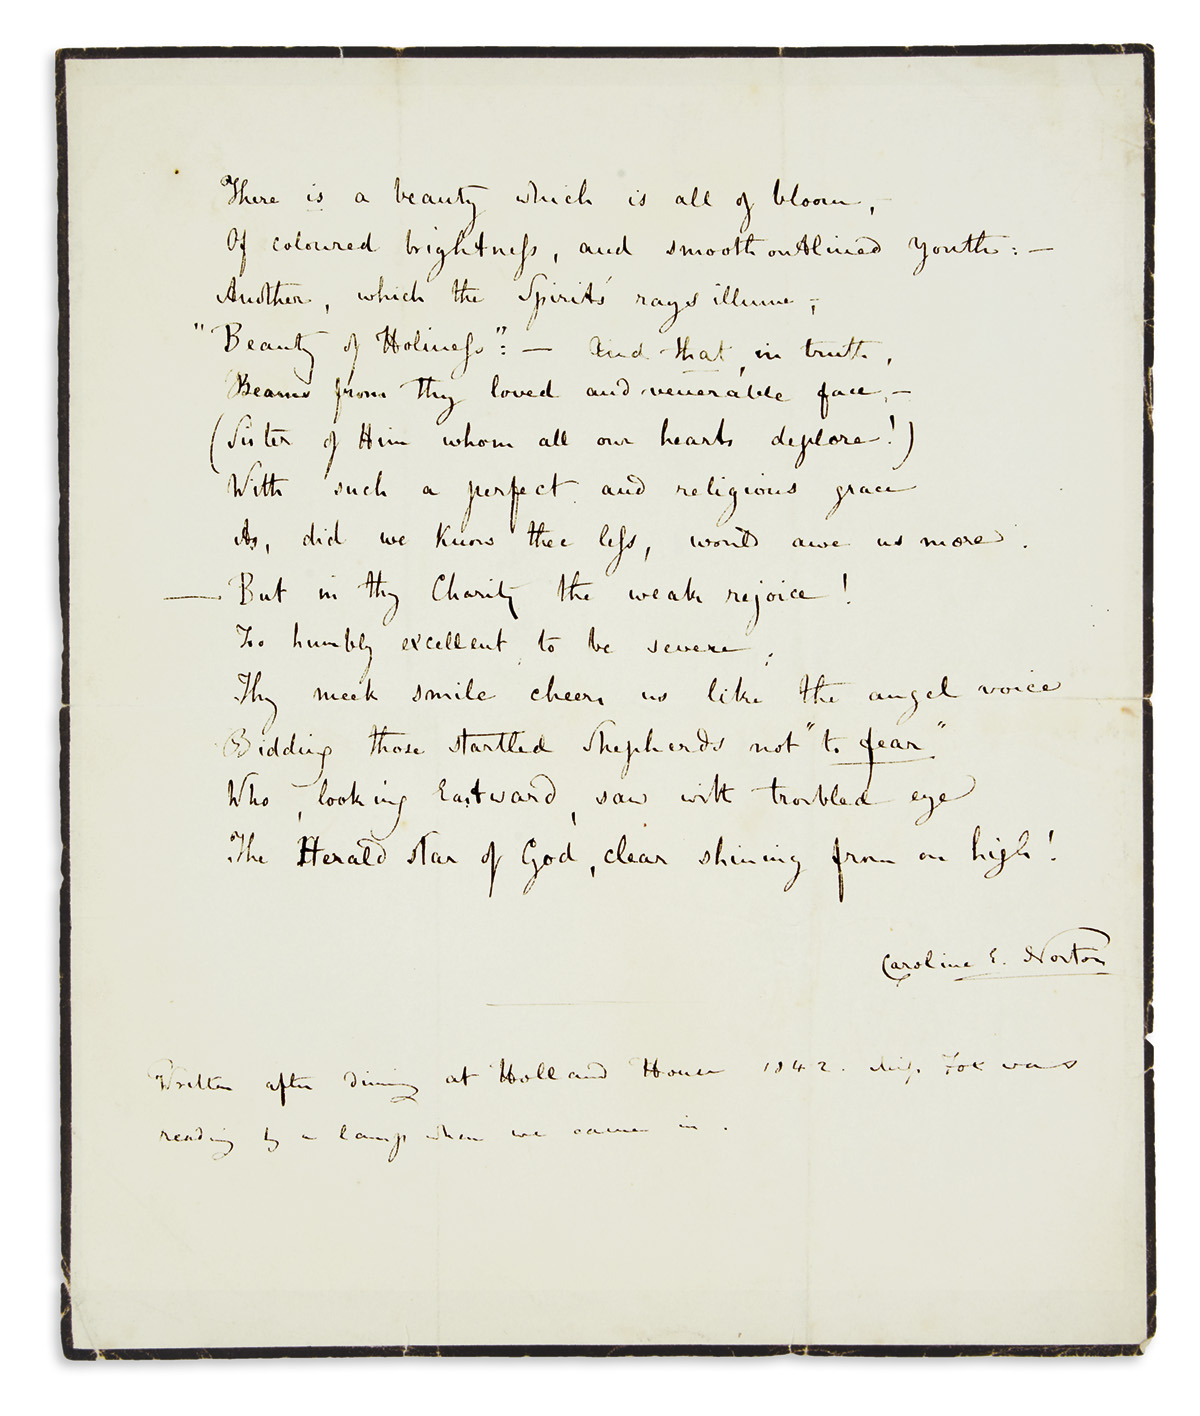 There is a beauty which is all of bloom,
Of coloured brightness, and smooth outlined youth: —
Another, which the Spirit's rays illume;
"Beauty of Holiness": — And that, in truth,
Beams from thy loved and venerable face, —
(Sister of Him whom all our hearts deplore!)
With such a perfect and religious grace
As, did we know thee less, would awe us more.
— But in thy Charity the weak rejoice!
Too humbly excellent, to be severe,
Thy meek smile cheers us like the angel voice
Bidding those startled Shepherds not "to fear"
Who, looking Eastward, saw with troubled eye
The Herald star of God, clear shining from on high!
Caroline E. Norton
Written after dining at Holland House 1842. Miss Fox was
reading by a lamp when we came in.